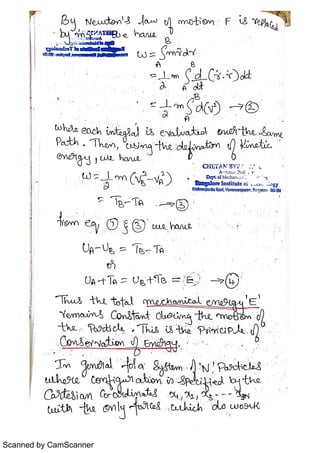 By Newton's law of motion F is replaced
by mr̈. We have
W = ∫ m r̈ dr
A B
= 1/2 m ∫ d/dt (ṙ.ṙ) dt
= 1/2 m ∫ d(v²) → ②
where each integral is evaluated over the same
Path. Then, using the defination of Kinetic
energy, we have
W = 1/2 m (V_B² - V_A²)
= T_B - T_A → ③
from eq ① & ③ we have
U_A - U_B = T_B - T_A
or
U_A + T_A = U_B + T_B = E → ④
Thus the total mechanical energy 'E'
remains Constant during the motion of
the Particle. This is the Principle of
Conservation of Energy.
In general for a System of 'N' Particles
where Configuration is Specified by the
Cartesian Co-ordinates x₁, x₂, x₃ --- x₃N
with the only forces which do work
Scanned by CamScanner